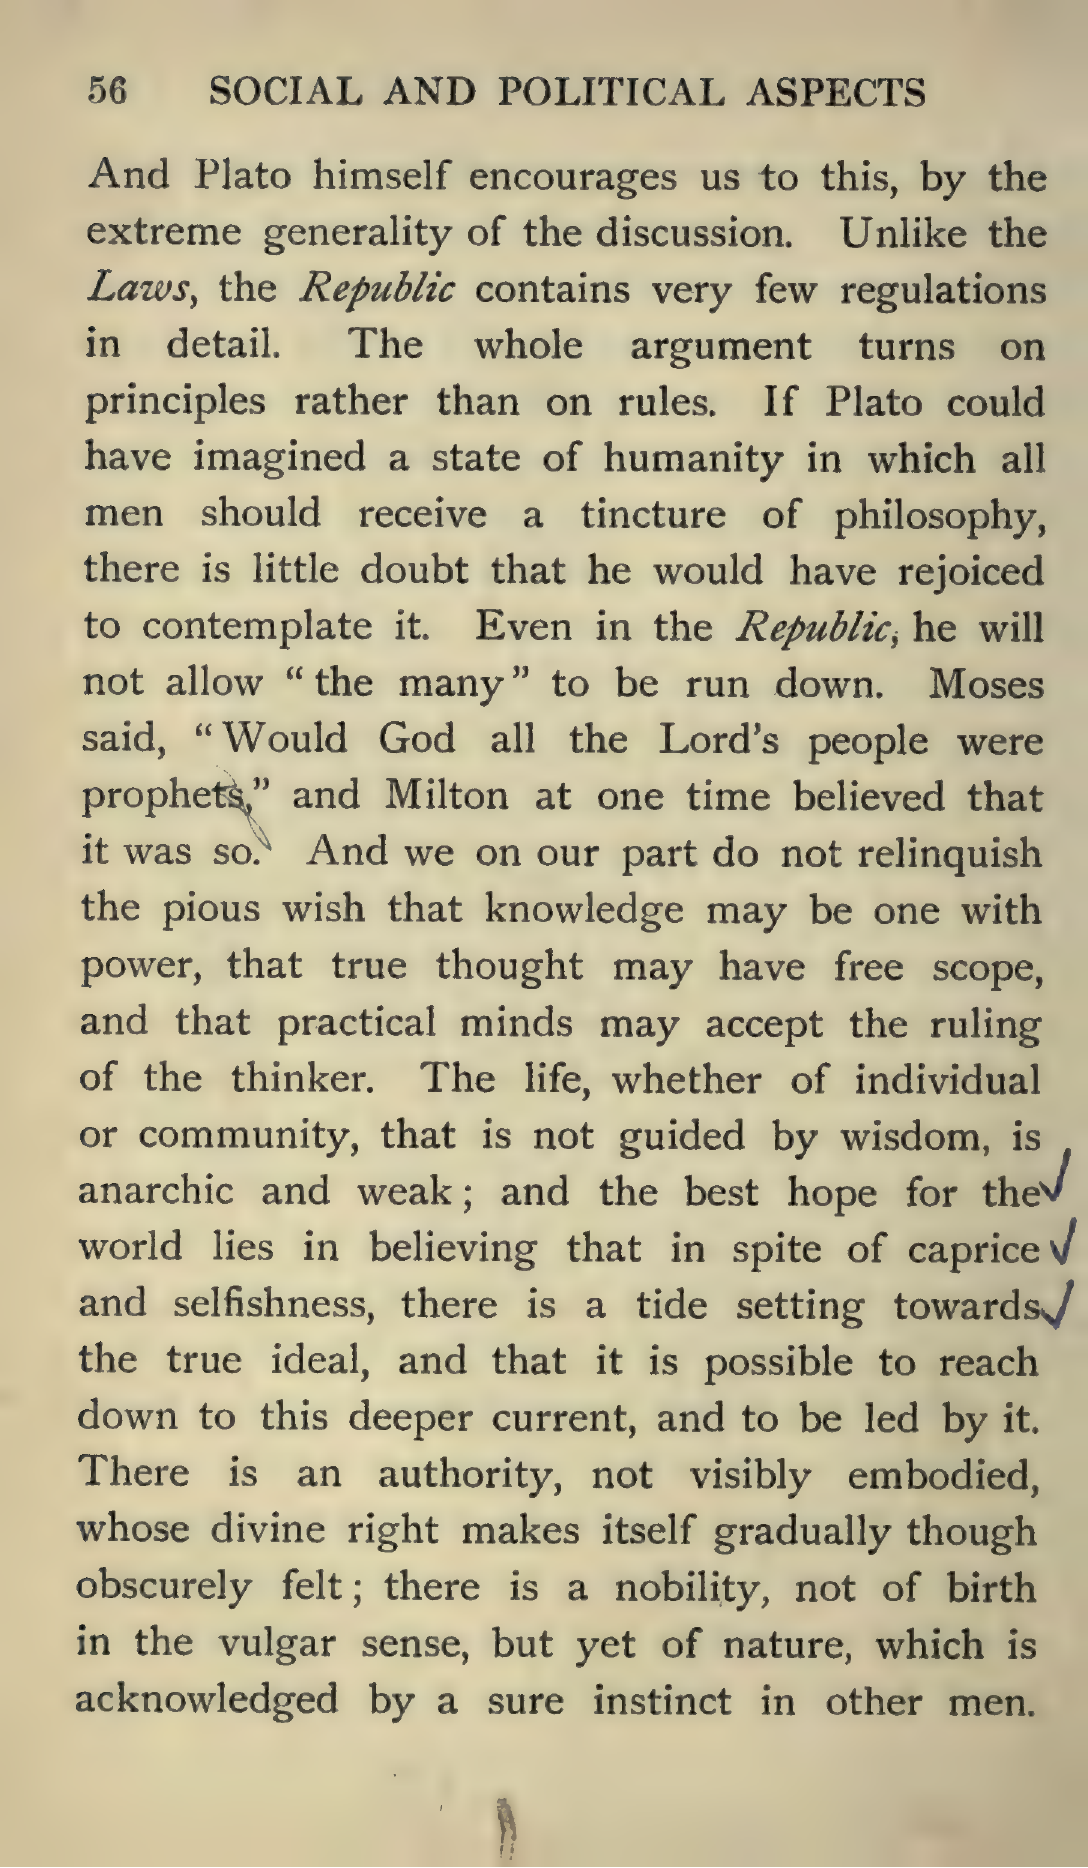 56 SOCIAL AND POLITICAL ASPECTS
And Plato himself encourages us to this, by the
extreme generality of the discussion. Unlike the
Laws, the Republic contains very few regulations
in detail. The whole argument turns on
principles rather than on rules. If Plato could
have imagined a state of humanity in which all
men should receive a tincture of philosophy,
there is little doubt that he would have rejoiced
to contemplate it. Even in the Republic, he will
not allow “the many” to be run down. Moses
said, “Would God all the Lord's people were
prophets,” and Milton at one time believed that
it was so. And we on our part do not relinquish
the pious wish that knowledge may be one with
power, that true thought may have free scope,
and that practical minds may accept the ruling
of the thinker. The life, whether of individual
or community, that is not guided by wisdom, is
anarchic and weak; and the best hope for the
world lies in believing that in spite of caprice
and selfishness, there is a tide setting towards
the true ideal, and that it is possible to reach
down to this deeper current, and to be led by it.
There is an authority, not visibly embodied,
whose divine right makes itself gradually though
obscurely felt; there is a nobility, not of birth
in the vulgar sense, but yet of nature, which is
acknowledged by a sure instinct in other men.